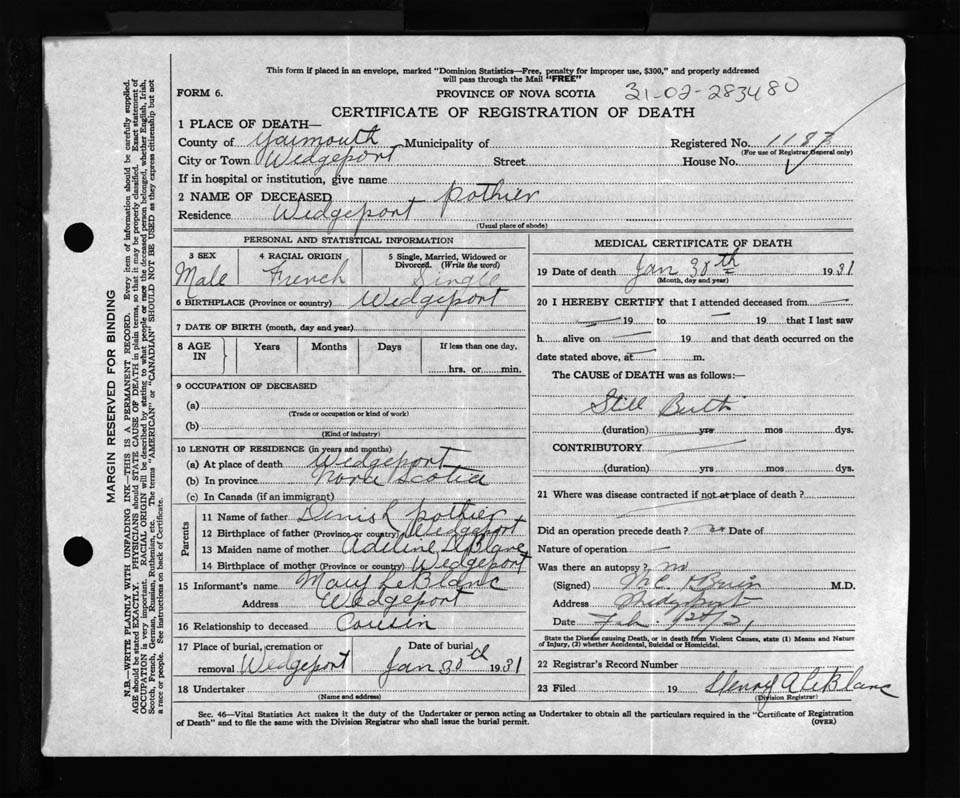 This form if placed in an envelope, marked "Dominion Statistics—Free, penalty for improper use, $300," and properly addressed
will pass through the Mail "FREE"
FORM 6.
PROVINCE OF NOVA SCOTIA
31-02-283480
CERTIFICATE OF REGISTRATION OF DEATH
1 PLACE OF DEATH—
County of Yarmouth Municipality of Registered No. 1187
City or Town Wedgeport Street House No. (For use of Registrar General only)
If in hospital or institution, give name
2 NAME OF DECEASED Pothier
Residence Wedgeport
(Usual place of abode)
PERSONAL AND STATISTICAL INFORMATION
3 SEX 4 RACIAL ORIGIN 5 Single, Married, Widowed or
Divorced. (Write the word)
Male French Single
6 BIRTHPLACE (Province or country) Wedgeport
7 DATE OF BIRTH (month, day and year)
8 AGE IN Years Months Days If less than one day,
hrs. or min.
9 OCCUPATION OF DECEASED
(a)
(Trade or occupation or kind of work)
(b)
(Kind of industry)
10 LENGTH OF RESIDENCE (in years and months)
(a) At place of death Wedgeport
(b) In province Nova Scotia
(c) In Canada (if an immigrant)
Parents
11 Name of father Denis Pothier
12 Birthplace of father (Province or country) Wedgeport
13 Maiden name of mother Adeline LeBlanc
14 Birthplace of mother (Province or country) Wedgeport
15 Informant's name Mary LeBlanc
Address Wedgeport
16 Relationship to deceased Cousin
17 Place of burial, cremation or Date of burial
removal Wedgeport Jan 30th 1931
18 Undertaker
(Name and address)
MEDICAL CERTIFICATE OF DEATH
19 Date of death Jan 30th 1931
(Month, day and year)
20 I HEREBY CERTIFY that I attended deceased from
19 to 19 that I last saw
h alive on 19 and that death occurred on the
date stated above, at m.
The CAUSE of DEATH was as follows:—
Still Birth
(duration) yrs mos dys.
CONTRIBUTORY
(duration) yrs mos dys.
21 Where was disease contracted if not at place of death?
Did an operation precede death? no Date of
Nature of operation
Was there an autopsy? no
(Signed) M.D.
Address Wedgeport
Date Feb
State the Disease causing Death, or in death from Violent Causes, state (1) Means and Nature
of Injury, (2) whether Accidental, Suicidal or Homicidal.
22 Registrar's Record Number
23 Filed 19 Henry A LeBlanc
(Division Registrar)
Sec. 46—Vital Statistics Act makes it the duty of the Undertaker or person acting as Undertaker to obtain all the particulars required in the "Certificate of Registration
of Death" and to file the same with the Division Registrar who shall issue the burial permit.
(OVER)
MARGIN RESERVED FOR BINDING
N.B.—WRITE PLAINLY WITH UNFADING INK—THIS IS A PERMANENT RECORD. Every item of information should be carefully supplied.
AGE should be stated EXACTLY. PHYSICIANS should STATE CAUSE OF DEATH in plain terms, so that it may be properly classified. Exact statement of
OCCUPATION is very important. RACIAL ORIGIN will be described by stating to what people or race the deceased person belonged, whether English, Irish,
Scotch, French, German, Russian, Ruthenian, etc. The terms "AMERICAN" or "CANADIAN" SHOULD NOT BE USED as they express citizenship but not
a race or people. See instructions on back of Certificate.